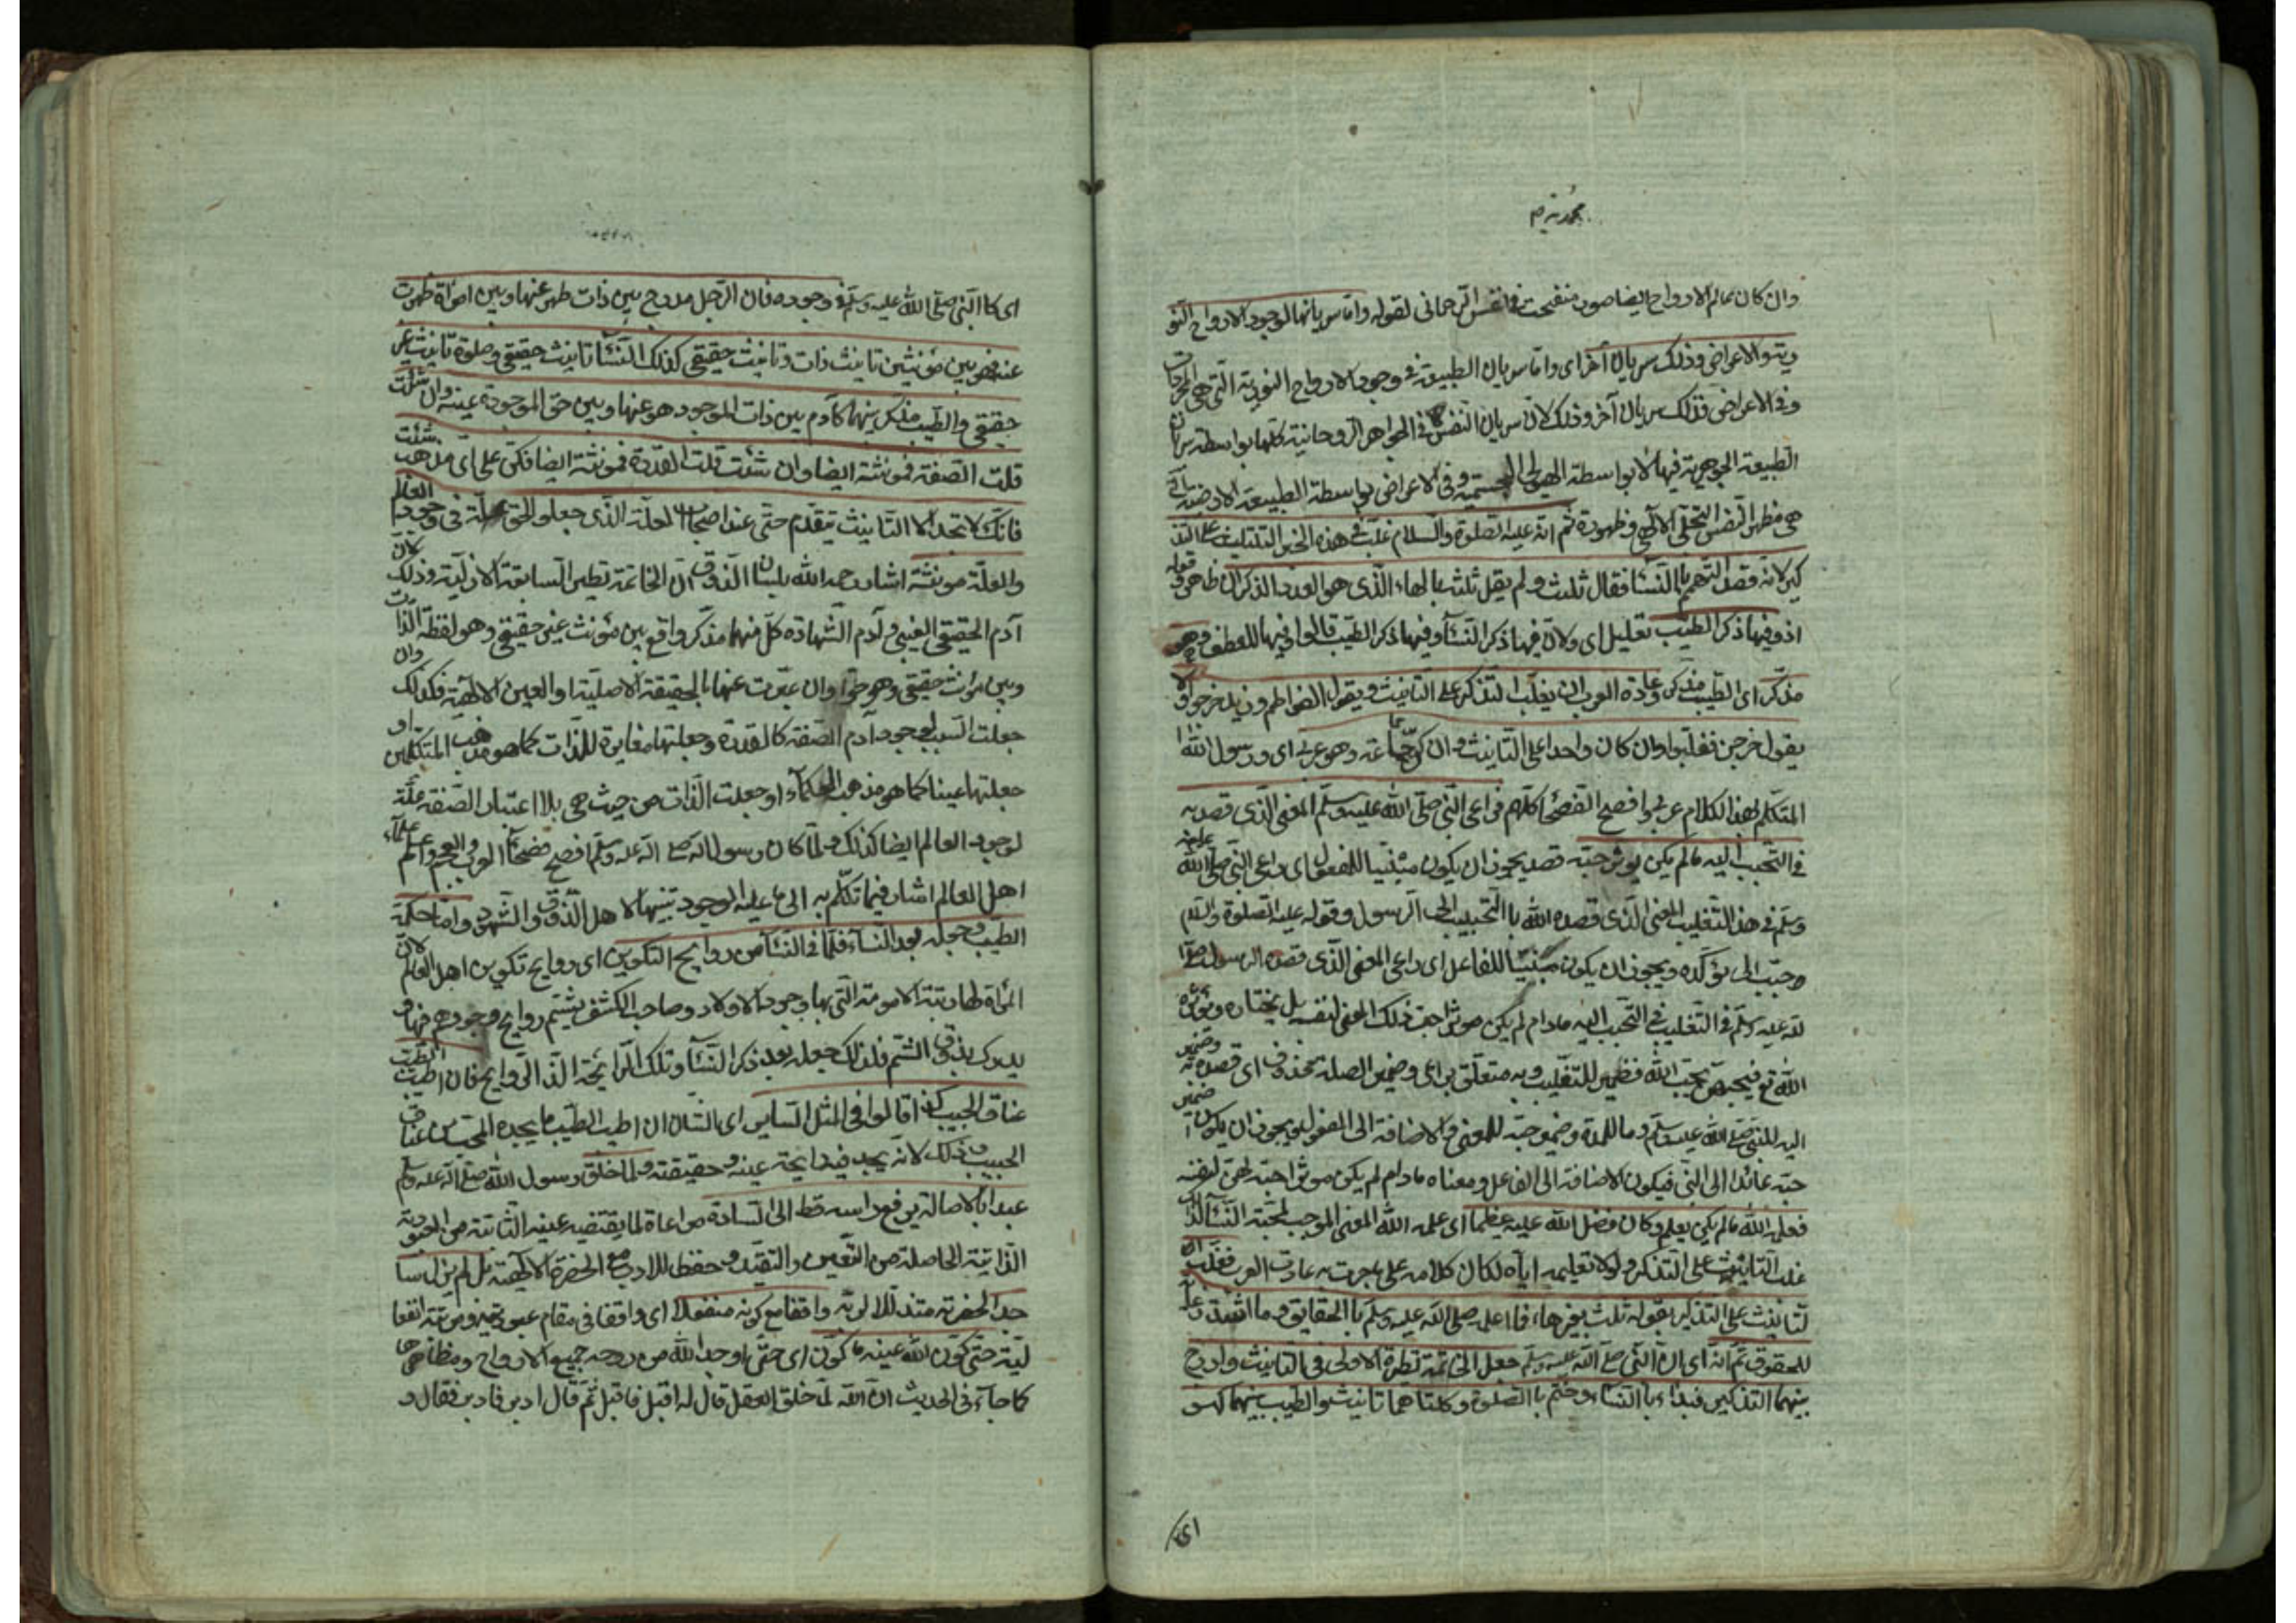 محمدية م
وان كان عالم الارواح ايضا صور منفتحت في النفس الرحماني لقوله واما سريانها لوجود الارواح النو
رية والاعراض وذلك سريان آخر اى واما سريان الطبيعة في وجود الارواح النورية التى هي المجردات
وفى الاعراض فذلك سريان آخر وذلك لان سريان النفس في الجواهر الروحانية كلها بواسطة سريان
الطبيعة الجوهرية فيها لا بواسطة الهيولى الجسمية وفى الاعراض بواسطة الطبيعة
هي مظهر النفس التجلى الالهى وظهوره ثم انه عليه الصلوة والسلام غلب في هذه الخبر التانيث على التذ
كير لانه قصد التهمم بالنساء فقال ثلث ولم يقل ثلثة بالهاء الذى هو لعدد الذكران ظاهر وقوله
اذ وفيها ذكر الطيب تعليل اى ولان فيها ذكر النساء وفيها ذكر الطيب قالوا وفيها للعطف وهو
مذكر اى الطيب مذكر وعادة العرب ان يغلب التذكير على التانيث ويقول الفواطم وزيد خرجوا ولا
يقول خرجن فغلبوا وان كان واحدا على التانيث وان كن جماعة وهو عربى اى ورسول الله
المتكلم بهذا الكلام عربى وافصح الفصحاء كلهم فراعى النبى صلى الله عليه وسلم المعنى الذى قصد به
في التحبب اليه ما لم يكن يؤثر حبه قصد يجوز ان يكون مبنيا للمفعول اى راعى النبى صلى الله عليه
وسلم في هذا التغليب المعنى الذى قصده الله بالتحبيب الى الرسول وقوله عليه الصلوة والسلام
وحبب الى يؤكده ويجوز ان يكون مبنيا للفاعل اى راعى المعنى الذى قصده الرسول صلى
الله عليه وسلم في التغليب في التحبب اليه مادام لم يكن مؤثرا حب ذلك المعنى لنفسه بل يختاره ويؤثره
الله تع فيحبهن بحب الله فضمير للتغليب وبه متعلق براعى وضمير الصلة محذوف اى قصده به وضمير
اليه للنبى صلى الله عليه وسلم وما للمدة وضمير حبه للمعنى والاضافة الى المفعول ويجوز ان يكون ضمير
حبه عائدا الى النبى فيكون الاضافة الى الفاعل ومعناه مادام لم يكن مؤثرا حبه لهن لنفسه
فعلمه الله ما لم يكن يعلم وكان فضل الله عليه عظيما اى علمه الله المعنى الموجب لمحبة النساء
غلب التانيث على التذكير ولولا تعليمه اياه لكان كلامه على ما جرت به عادت العرب فغلب
لتانيث على التذكير بقوله ثلث بغير هاء فما اعلمه صلى الله عليه وسلم بالحقايق وما اشد رعايته
للحقوق ثم انه اى ان النبى صلى الله عليه وسلم جعل الخاتمة نظيرة الاولى في التانيث وادرج
بينهما التذكير فبداء بالنساء وختم بالصلوة وكلتاهما تانيث والطيب بينهما كهو
اى
اى كالنبى صلى الله عليه وسلم في وجوده فان الرجل مدرج بين ذات ظهر عنها وبين امراة ظهرت
عنه فهو بين مؤنثين تانيث ذات وتانيث حقيقى كذلك النساء تانيث حقيقى وصلوة تانيث غير
حقيقى والطيب مذكر بينهما كآدم بين ذات الموجود هو عنها وبين حوا الموجودة عنه وان شئت
قلت الصفة فمؤنثة ايضا وان شئت قلت القدرة فمؤنثة ايضا فكن على اى مذهب شئت
فانك لا تجد الا التانيث يتقدم حتى عند اصحاب العلة الذى جعلوا الحق علة في وجود العالم
والعلة مونثة اشار رحمه الله بلسان الذوق ان الخاتمة نظير السابقة الازلية وذلك لان
آدم الحقيقى الغيبى وآدم الشهادة كل منهما مذكر واقع بين مؤنث غير حقيقى وهو لفظة الذات
وبين مؤنث حقيقى وهو حوا وان عبرت عنها بالحقيقة الاصلية او العين الالهية فكذلك وان
جعلت السبب لوجود آدم الصفة كالقدرة وجعلتها مغايرة للذات كما هو مذهب المتكلمين او
جعلتها عينا كما هو مذهب الحكماء او جعلت الذات من حيث هي بلا اعتبار الصفة علة
لوجود العالم ايضا كذلك ولما كان رسول الله صلى الله عليه وسلم افصح فصحاء العرب والعجم واعلم علماء
اهل العالم اشار فيما تكلم به الى ما عليه الوجود تنبيها لاهل الذوق والشهود واما حكمة
الطيب وجعله بعد النساء فلما في النساء من روايح التكوين اى روايح تكوين اهل العالم لان
المراة لها رتبة الامومة التى بها وجود الاولاد وصاحب الكشف يشتم روايح وجودهم فيها و
يدرك بذوق الشم فلذلك جعله بعد ذكر النساء وتلك الرائحة الذ الروايح فان اطيب الطيب
عناق الحبيب كذا قالوا في المثل الساير اى بالشان ان اطيب الطيب ما يجده المحب من عناق
الحبيب وذلك لانه يجد فيه رايحة عينه وحقيقته ولما خلق رسول الله صلى الله عليه وسلم
عبدا بالاصالة لم يرفع راسه قط الى السيادة مراعاة لما يقتضيه عينه الثابتة من العبودية
الذاتية الحاصلة من التعين والتقيد وحفظا للادب مع الحضرة الالهية بل لم يزل سا
جدا لحضرته متذللا لربه واقفا مع كونه منفعلا اى واقفا في مقام عبوديته ومرتبة انفعا
ليته حتى كون الله عنه ما كون اى حتى اوجد الله من روحه جميع الارواح ومظاهرها
كما جاء في الحديث ان الله لما خلق العقل قال له اقبل فاقبل ثم قال ادبر فادبر فقال و